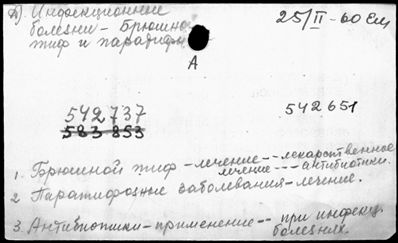 Д). Инфекционные
болезни - Брюшной
тиф и паратифы
25/II-60 Ем
А
542737
583 853
542651
1. Брюшной тиф - лечение -- лекарственное
лечение --- антибиотики.
2 Паратифозные заболевания - лечение.
3. Антибиотики - применение -- при инфекц.
болезнях.